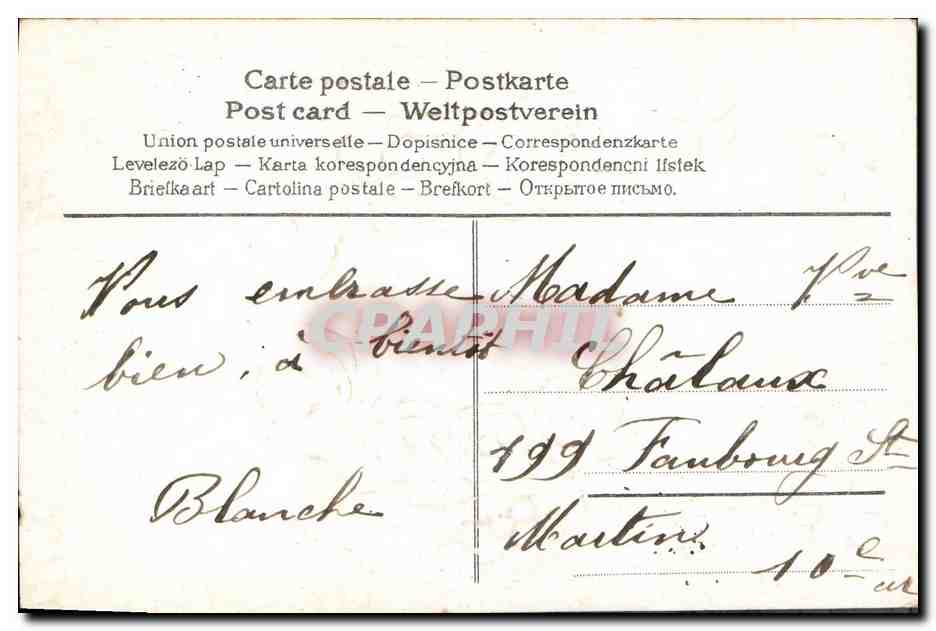 Carte postale — Postkarte
Post card — Weltpostverein
Union postale universelle — Dopisnice — Correspondenzkarte
Levelező-Lap — Karta korespondencyjna — Korespondencni listek
Briefkaart — Cartolina postale — Brefkort — Открытое письмо.
Vous embrasse
bien, à bientôt
Blanche
Madame Vve
Châlaux
199 Faubourg St
Martin
10e ar
CPAPHIL